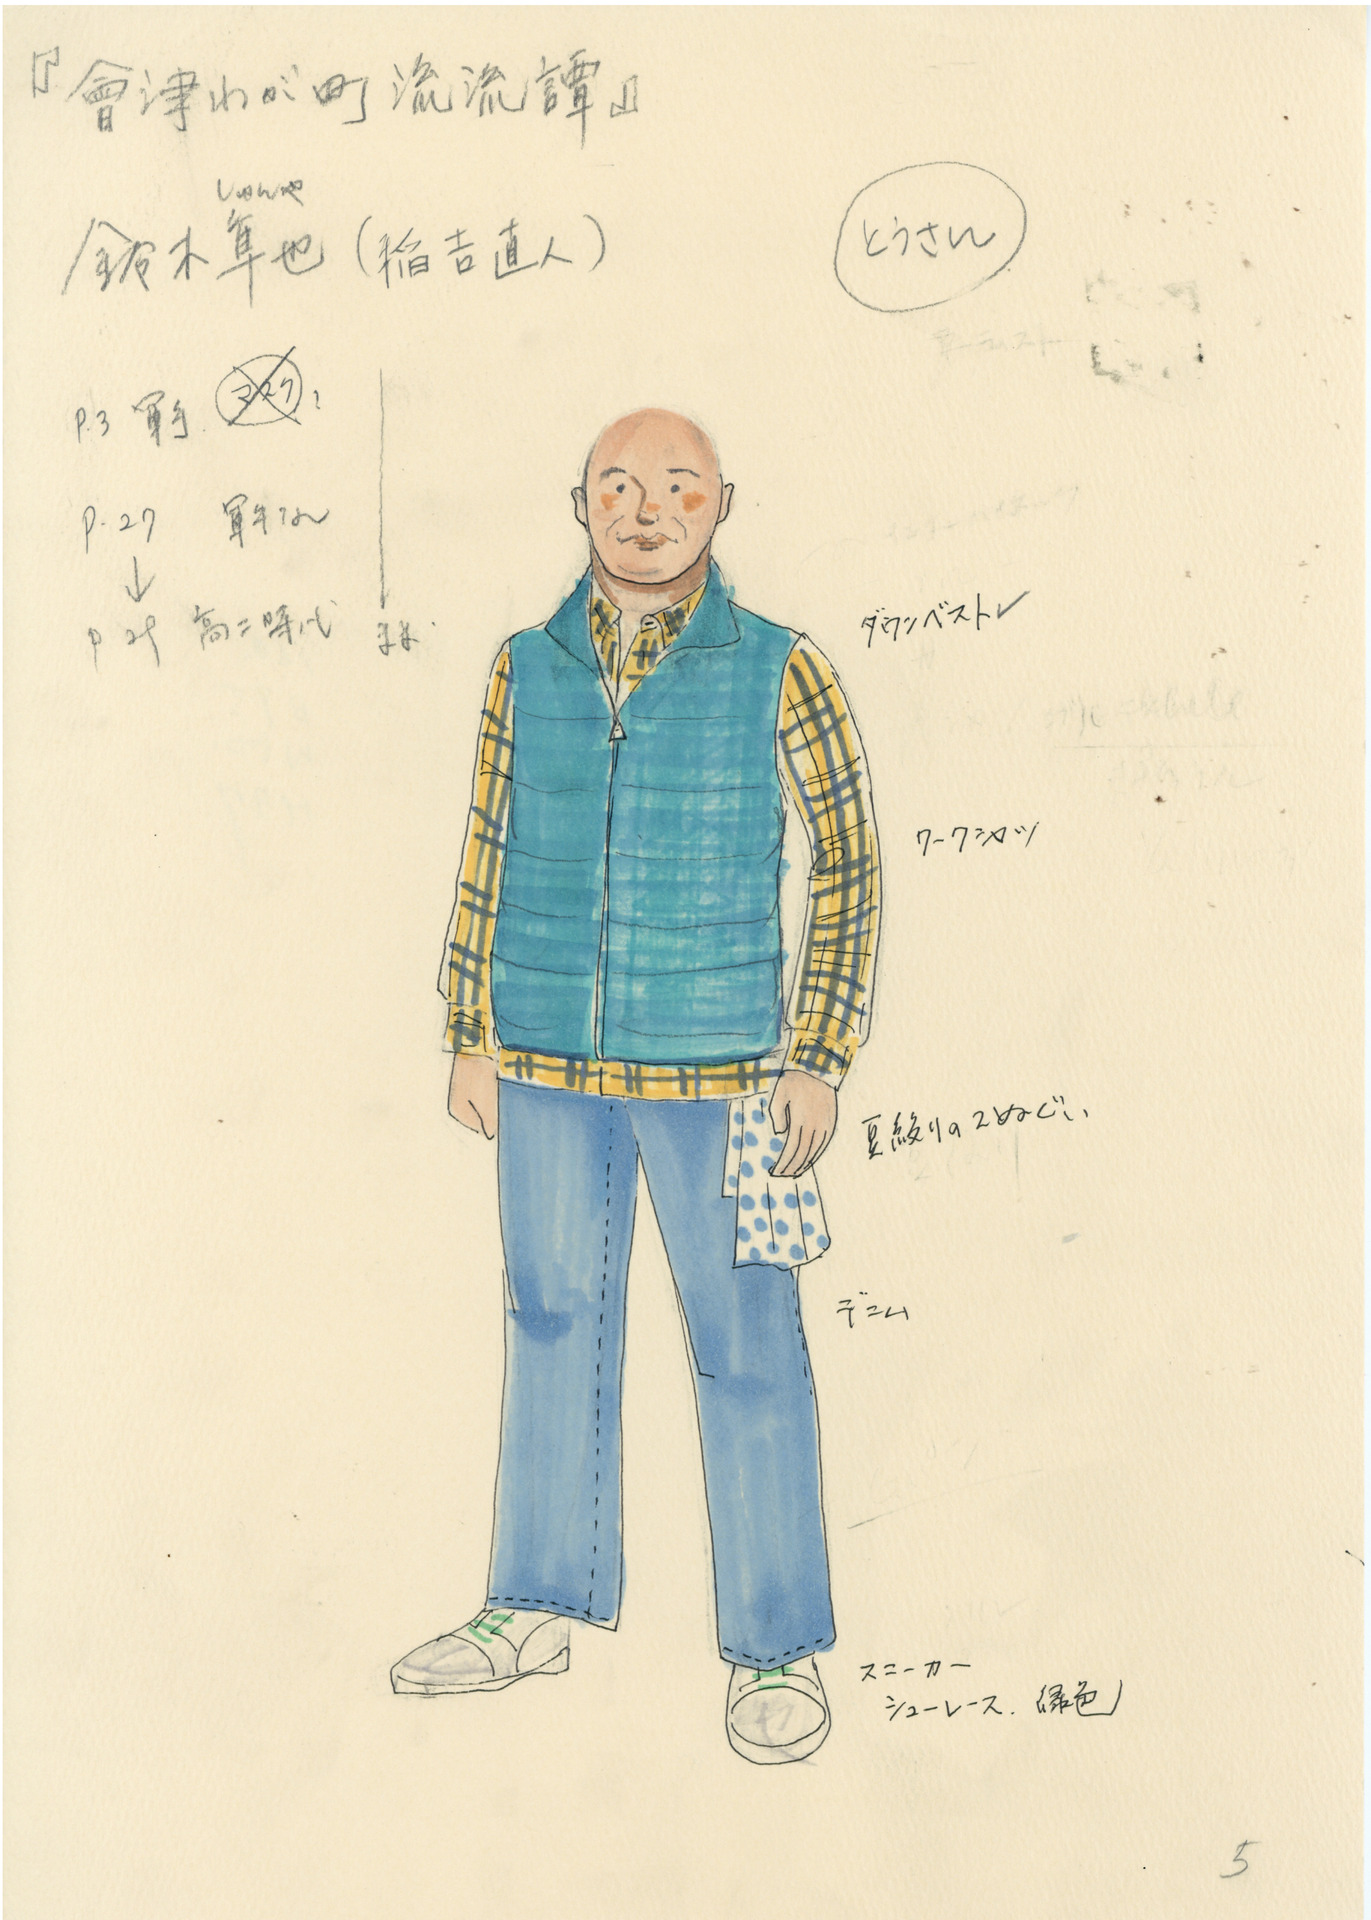 『會津わが町流流譚』
しゅんや
鈴木隼也(稲吉直人)
とうさん
P.3 軍手. マスク
P.27 軍手なし
↓
P 29 高二時代 まま.
ダウンベスト✓
ワークシャツ
豆絞りの手ぬぐい
デニム
スニーカー
シューレース. 緑色
5